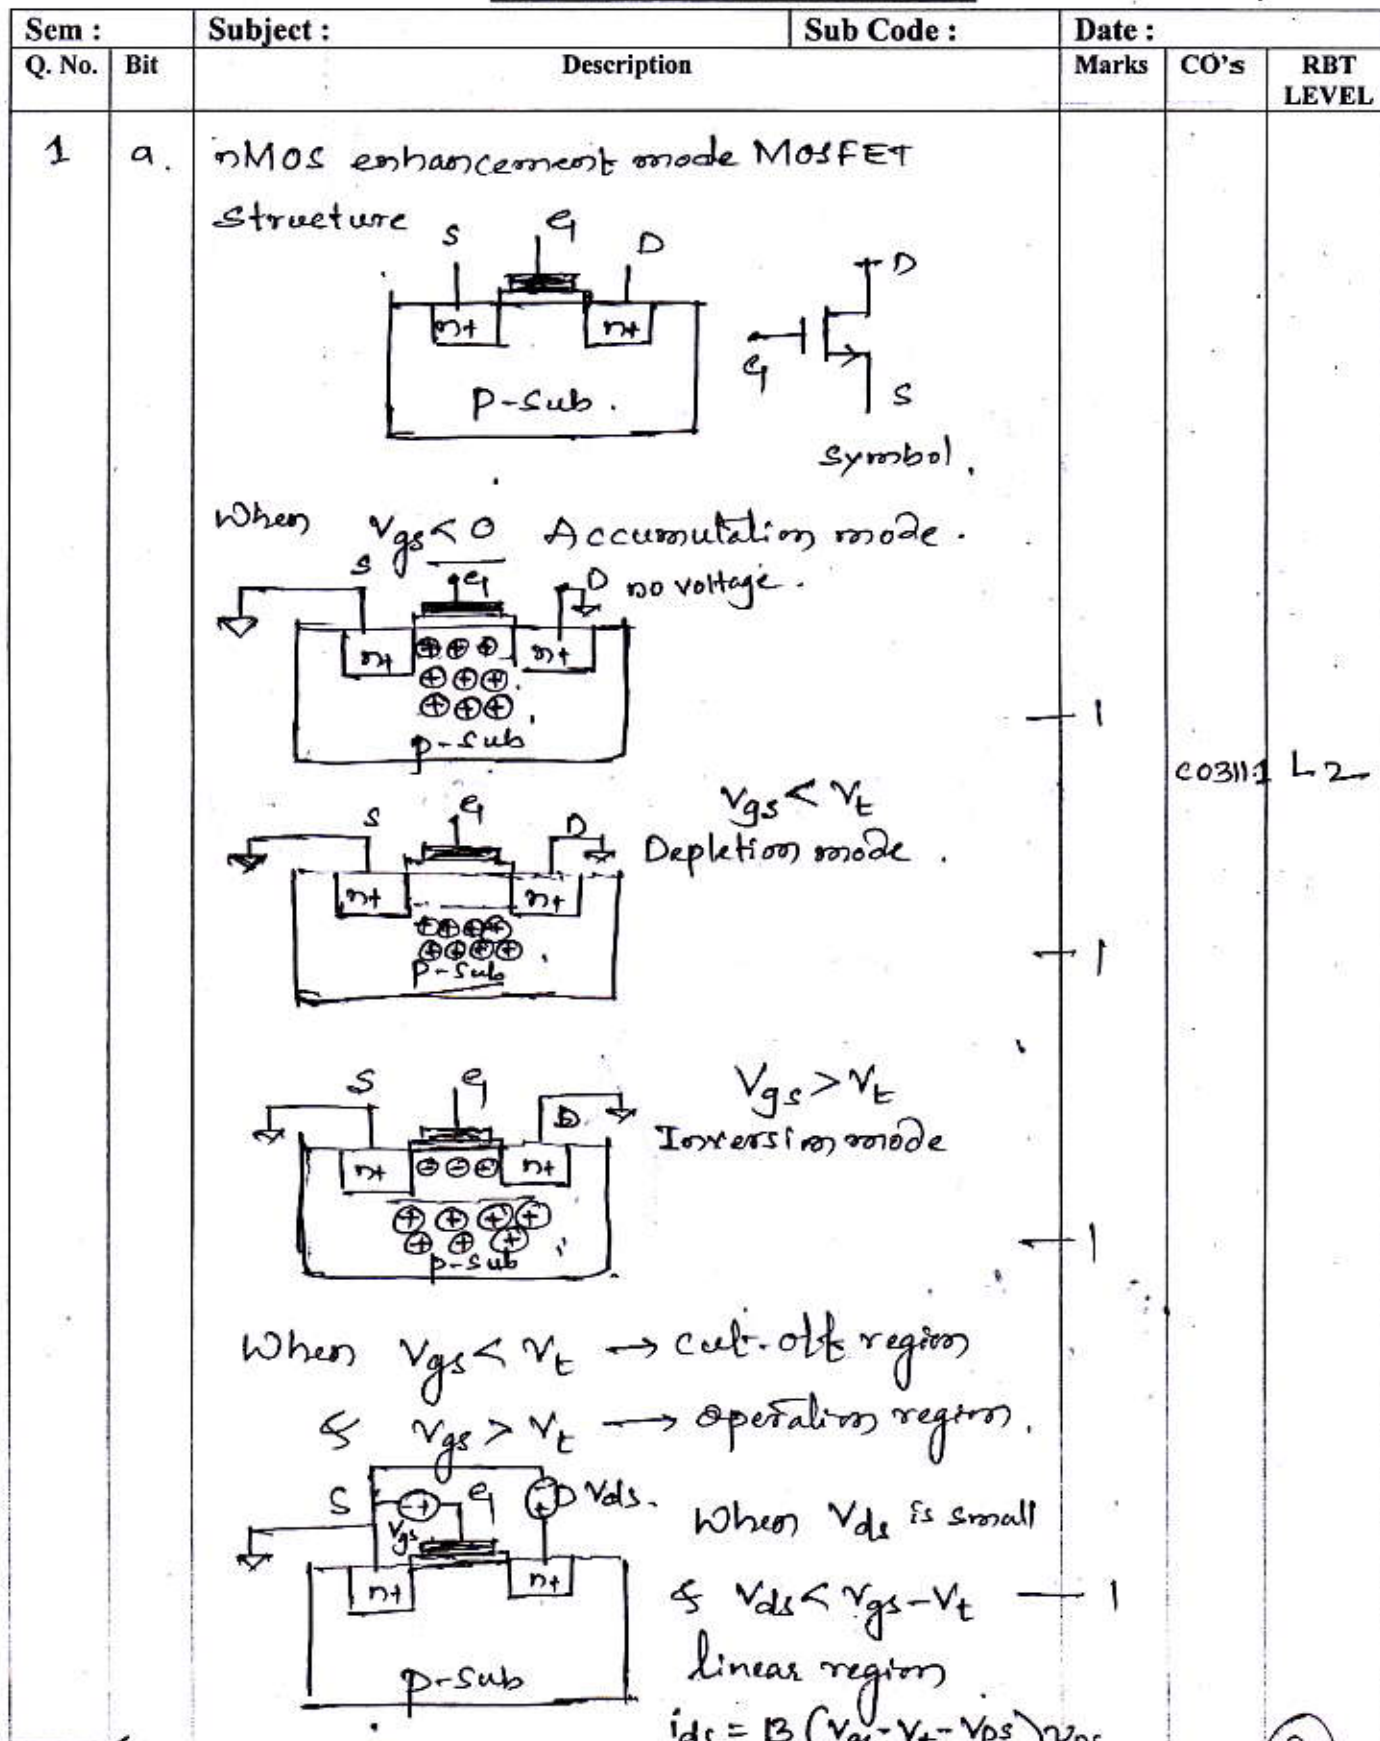 Sem : Subject : Sub Code : Date :
Q. No. Bit Description Marks CO's RBT LEVEL
1 a. nMOS enhancement mode MOSFET
Structure
S G D
n+ n+
P-Sub.
D
G
S
Symbol.
When Vgs < 0 Accumutation mode.
S G D no voltage.
n+ n+
p-sub
1
CO311.1 L2
Vgs < Vt
S G D
Depletion mode.
n+ n+
P-Sub
1
Vgs > Vt
S G D
Inversion mode
n+ n+
p-sub
1
When Vgs < Vt → cut-off region
& Vgs > Vt → operation region.
S G D Vds.
Vgs
When Vds is small
n+ n+
& Vds < Vgs - Vt 1
linear region
p-sub